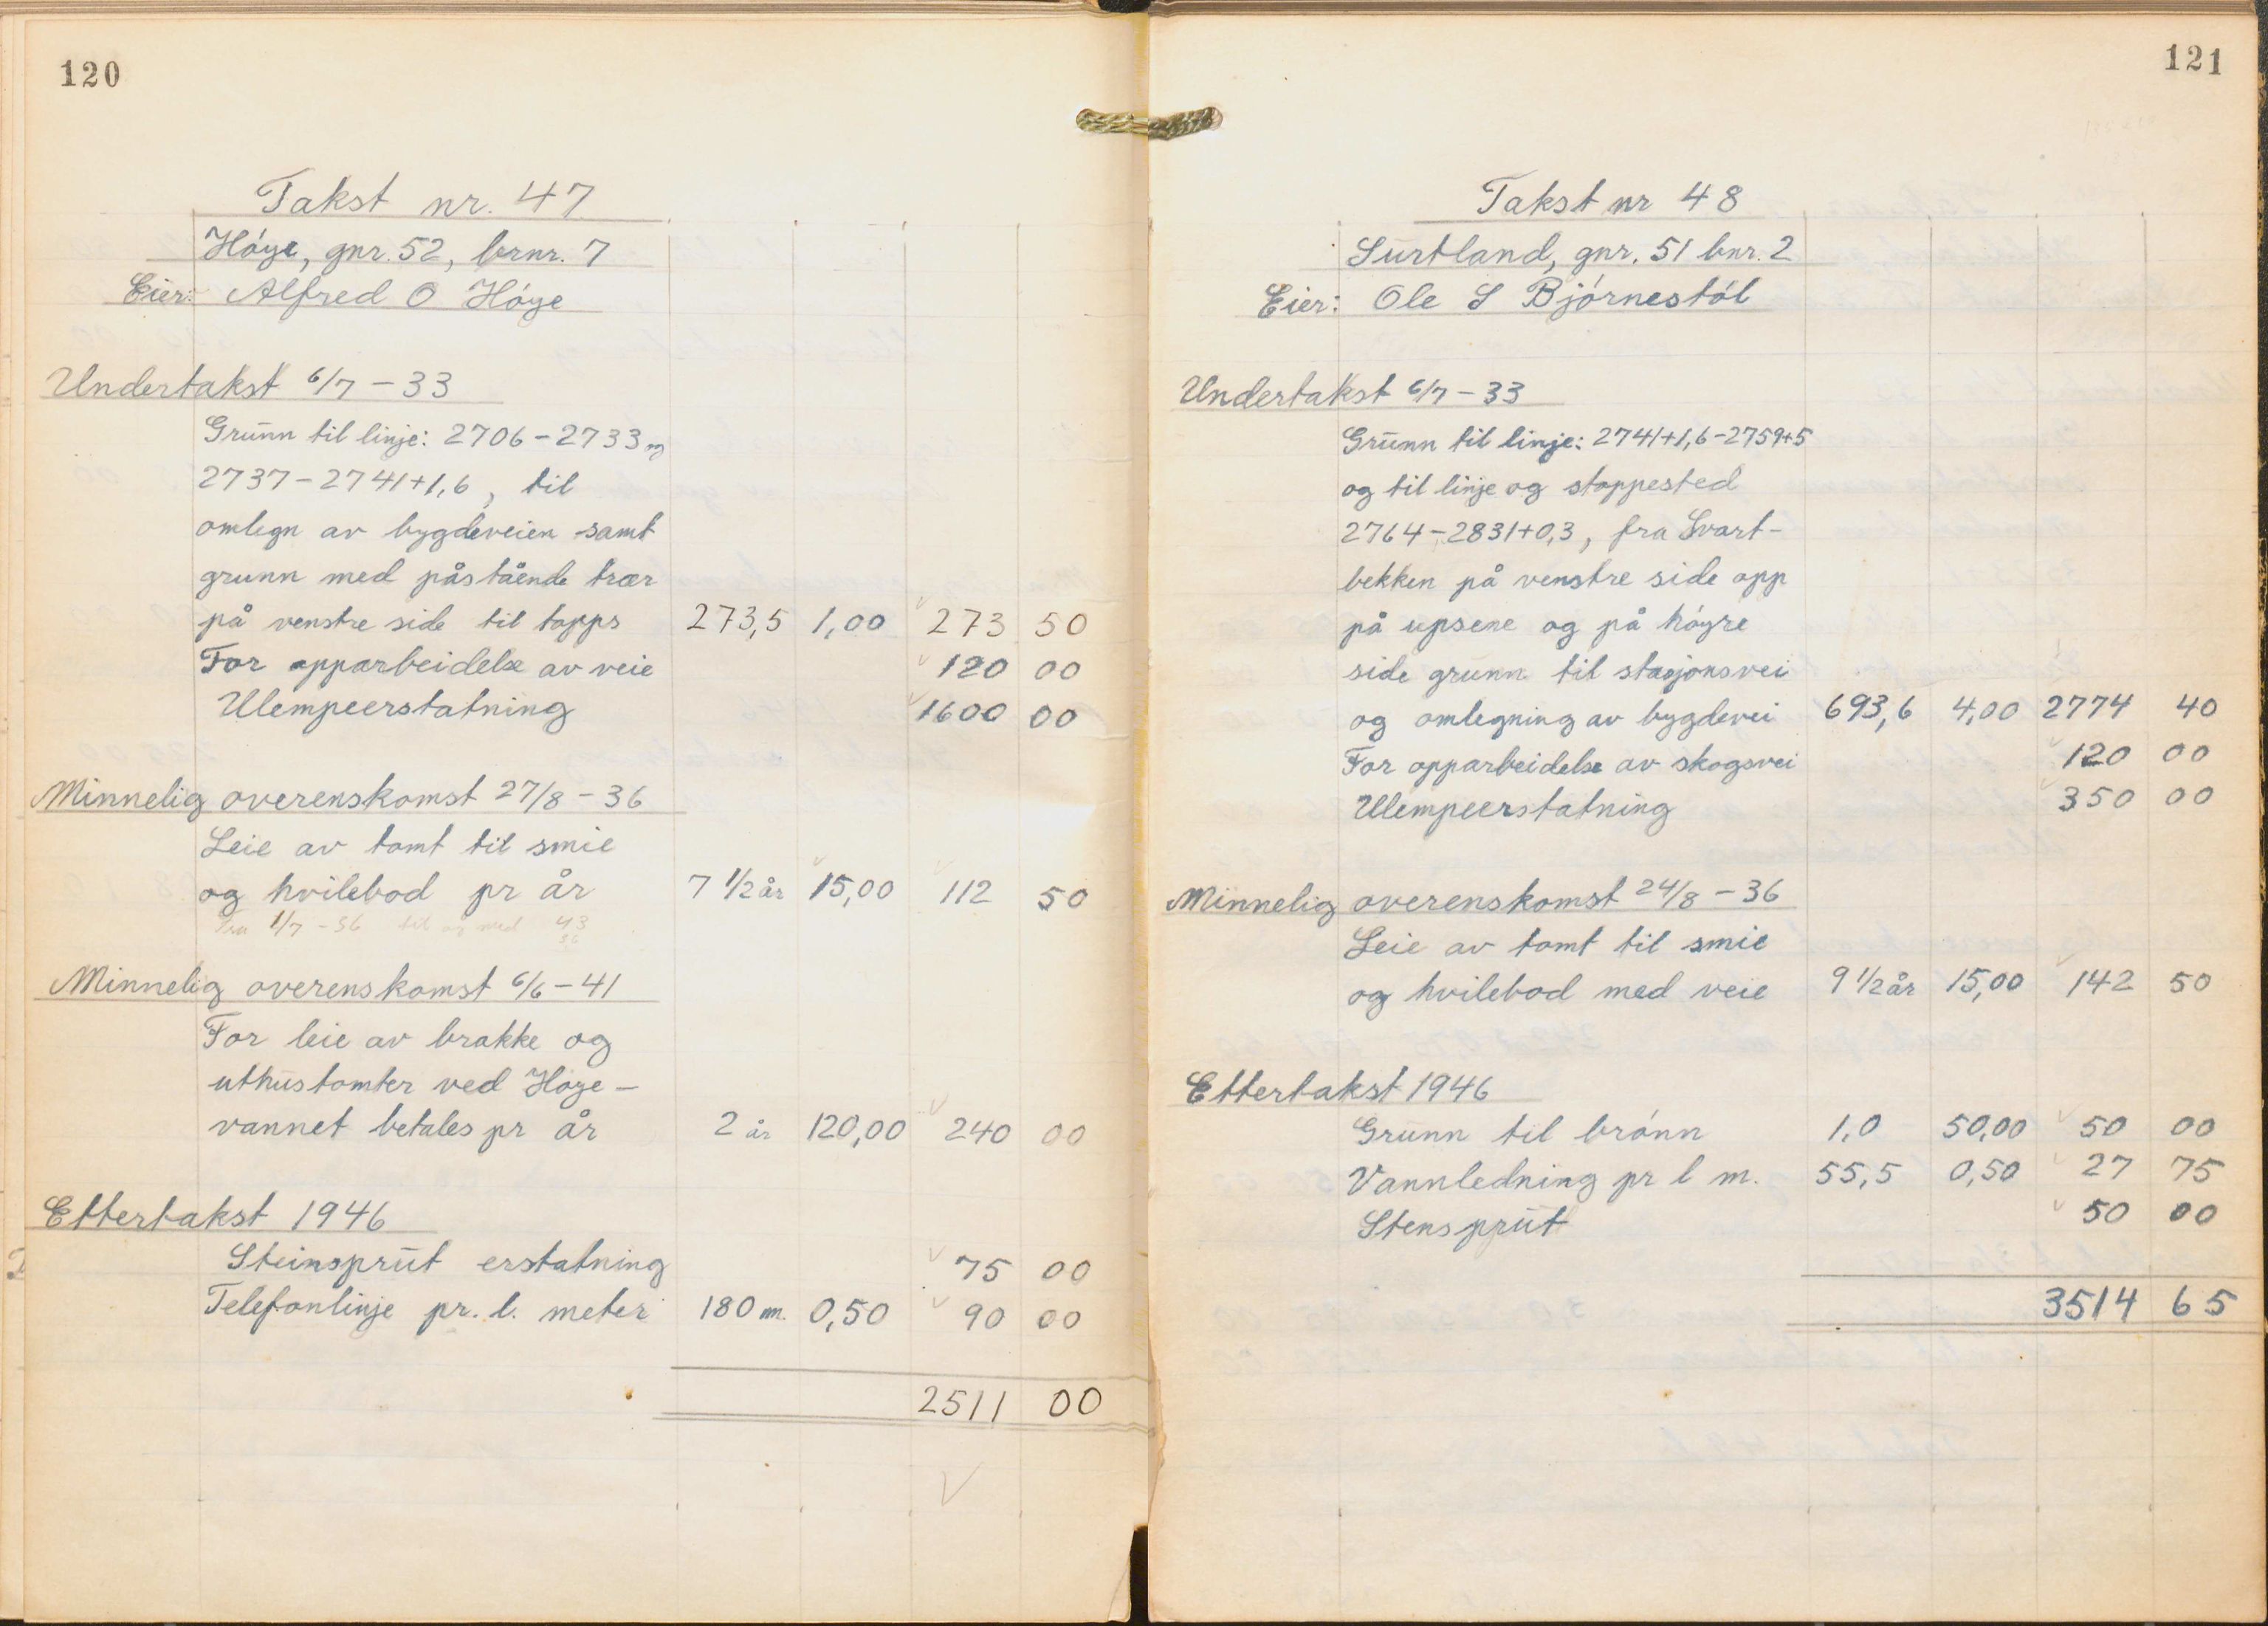 120
Takst nr. 47
Höye, gnr. 52, brnr. 7
Eier: Alfred O Höye
Undertakst 6/7 - 33
Grunn til linje: 2706 - 2733 og
2737 - 2741+1,6, til
omlegn av bygdeveien samt
grunn med påstående trær
på venstre side til topps 273,5 1,00 273 50
For opparbeidelse av veie 120 00
Ulempeerstatning 1600 00
Minnelig overenskomst 27/8 - 36
Leie av tomt til smie
og hvilebod pr år 7 1/2 år 15,00 112 50
Fra 1/7 - 36 til og med 43
36
Minnelig overenskomst 6/6 - 41
For leie av brakke og
uthustomter ved Höye-
vannet betales pr år 2 år 120,00 240 00
Ettertakst 1946
Steinsprut erstatning 75 00
Telefonlinje pr. l. meter 180 m. 0,50 90 00
2511 00
121
Takst nr 48
Surtland, gnr. 51 bnr. 2
Eier: Ole S Björnestöl
Undertakst 6/7 - 33
Grunn til linje: 2741+1,6 - 2759+5
og til linje og stoppested
2764 - 2831+0,3, fra Svart-
bekken på venstre side opp
på upsene og på höyre
side grunn til stasjonsvei
og omlegning av bygdevei 693,6 4,00 2774 40
For opparbeidelse av skogsvei 120 00
Ulempeerstatning 350 00
Minnelig overenskomst 24/8 - 36
Leie av tomt til smie
og hvilebod med veie 9 1/2 år 15,00 142 50
Ettertakst 1946
Grunn til brönn 1,0 50,00 50 00
Vannledning pr l m. 55,5 0,50 27 75
Stensprut 50 00
3514 65